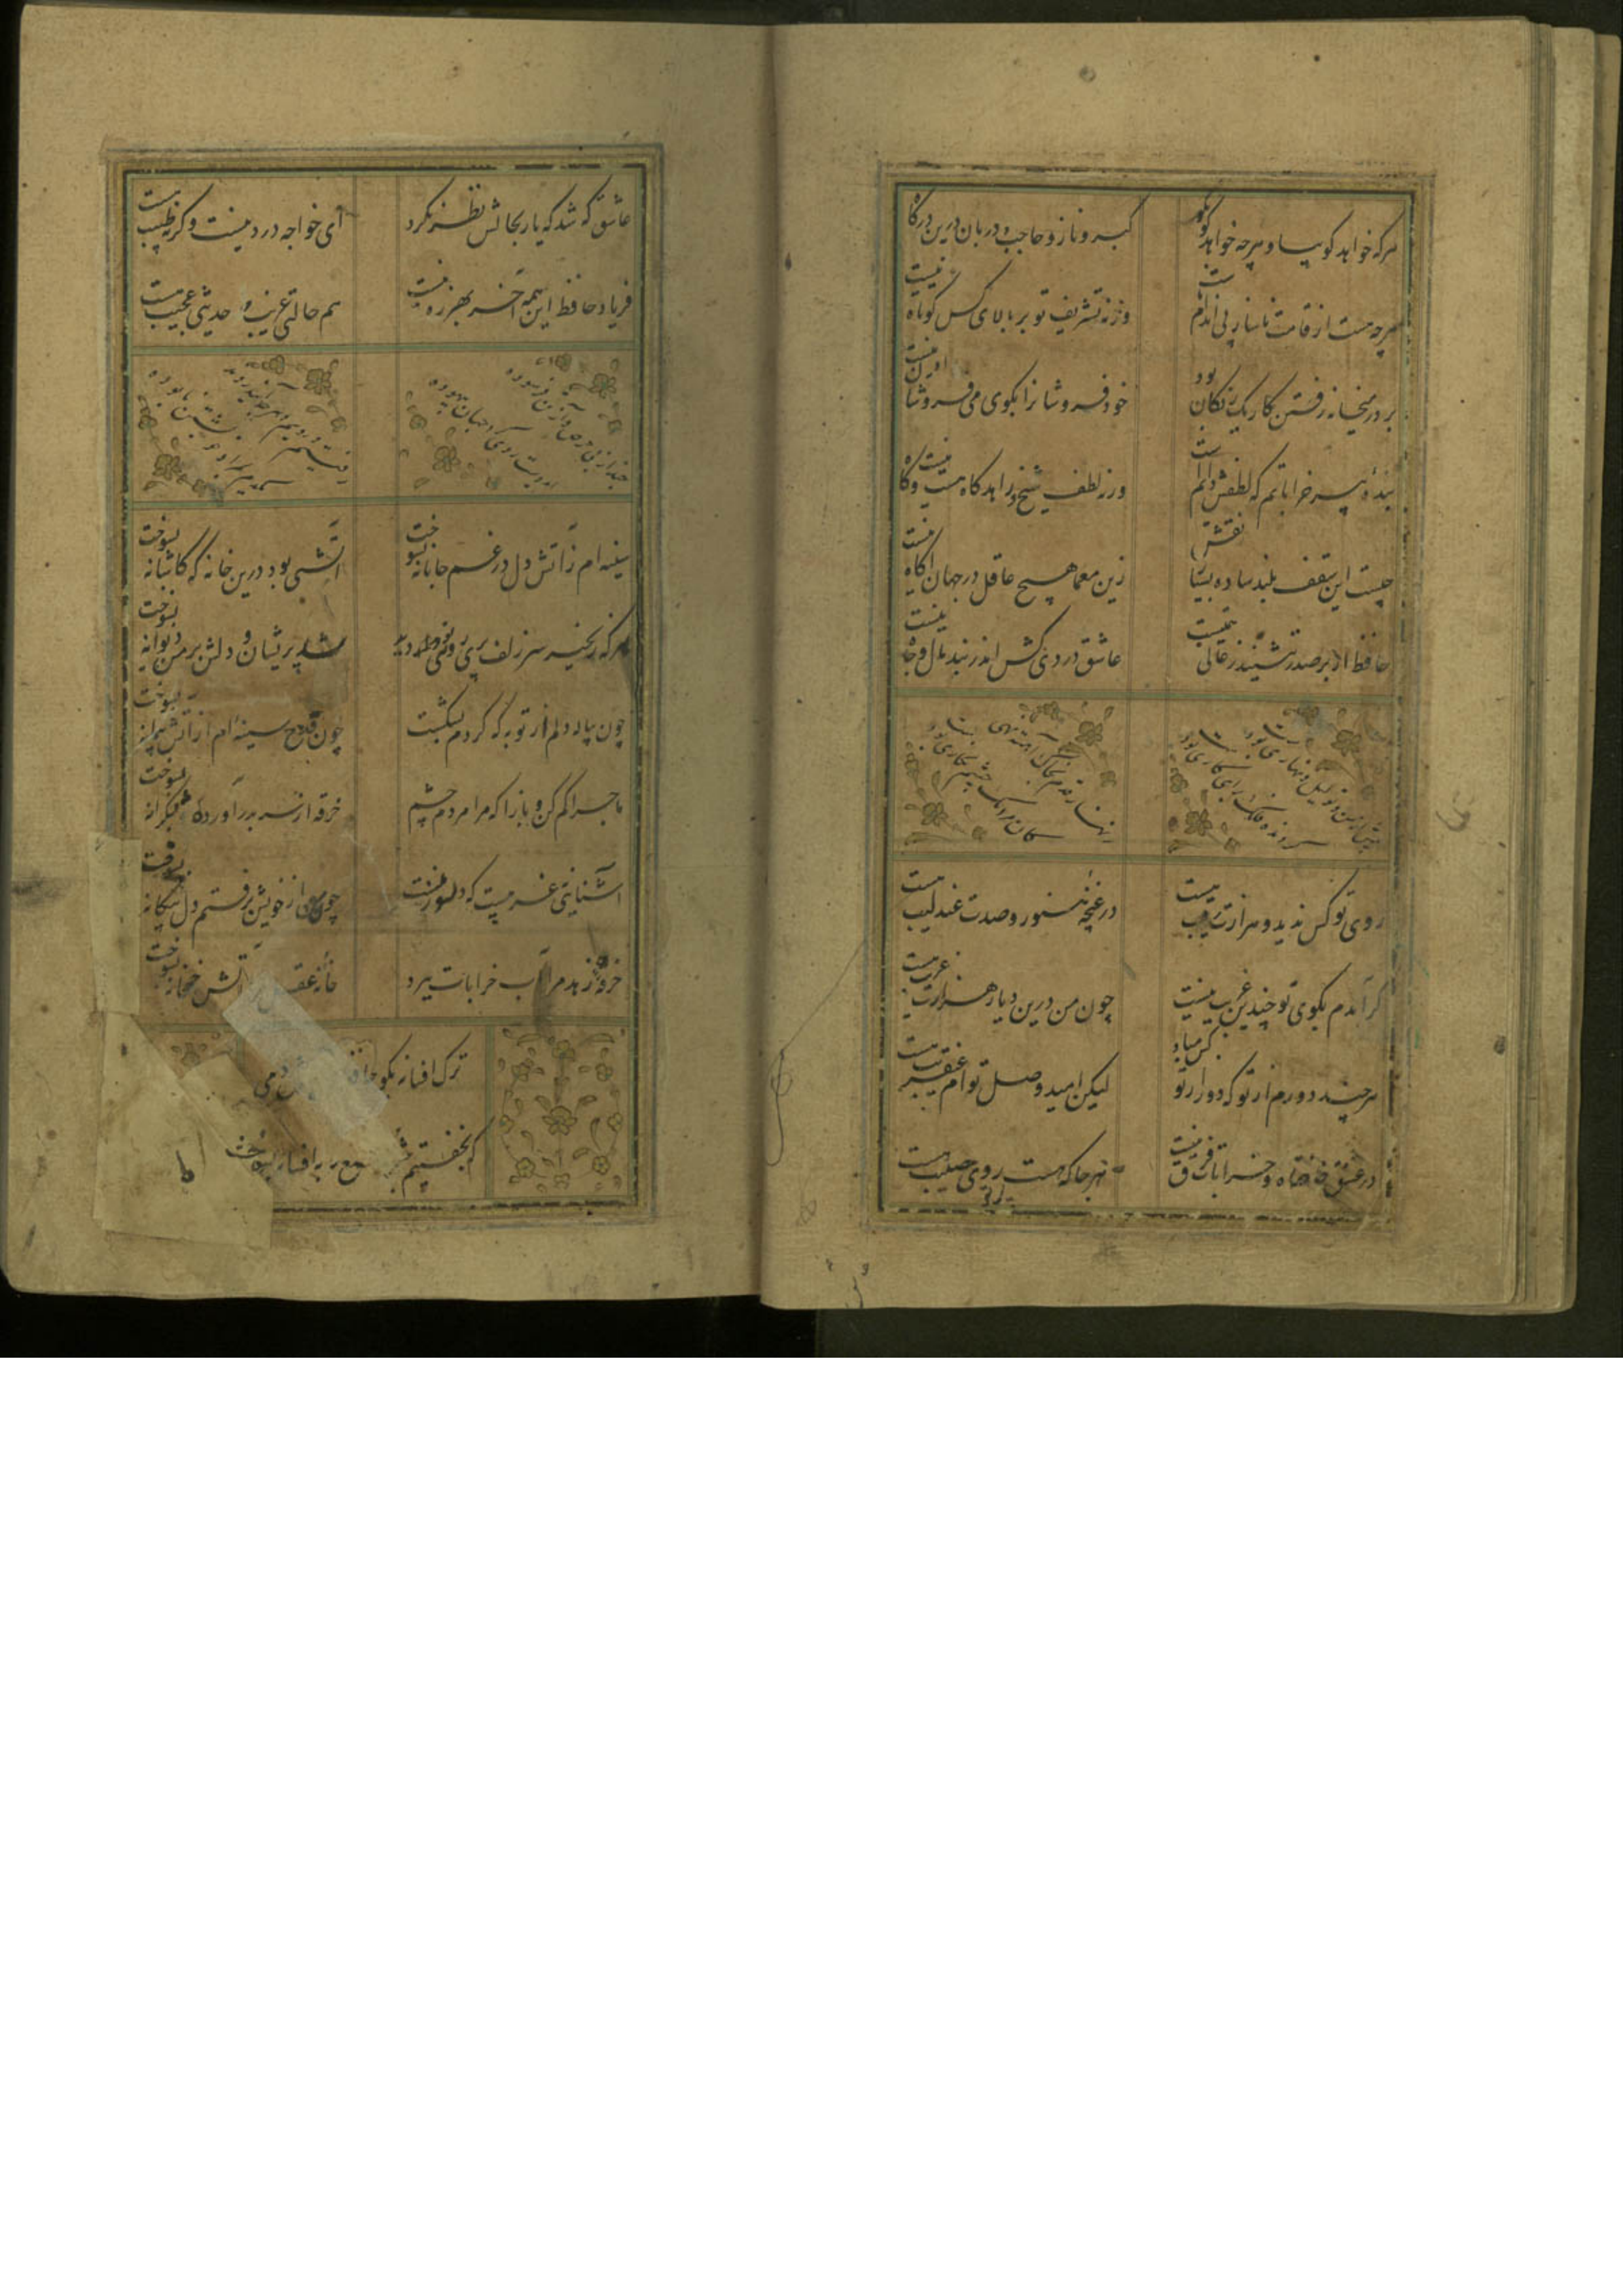 هرکه خواهد کو بیا و هرچه خواهد کو بکو
کبر و ناز و حاجب و دربان درین درکاه نیست
هرچه هست از قامت ناساز بی اندام ماست
ورنه تشریف تو بر بالای کس کوتاه نیست
بر در میخانه رفتن کار یک رنکان بود
خود فروشانرا بکوی می فروشان راه نیست
بنده پیر خراباتم که لطفش دایم است
ورنه لطف شیخ و زاهد کاه هست و کاه نیست
چیست این سقف بلند ساده بسیار نقش
زین معما هیچ عاقل در جهان اکاه نیست
حافظ ار بر صدر ننشیند ز عالی همتیست
عاشق دردی کش اندر بند مال و جاه نیست
پیش از من و تو لیل و نهاری بودست
کردنده فلک برای کاری بودست
زنهار قدم بخاک آهسته نهی
کان مردمک چشم نکاری بودست
روی تو کس ندید و هزارت رقیب هست
در غنچه هنوز و صدت عندلیب هست
کر آمدم بکوی تو چندین غریب نیست
چون من درین دیار هزاران غریب هست
هرچند دورم از تو که دور از تو کس مباد
لیکن امید وصل توام عنقریب هست
در عشق خانقاه و خرابات فرق نیست
هرجا که هست روی حبیب هست
عاشق که شد که یار بحالش نظر نکرد
ای خواجه درد نیست وکرنه طبیب هست
فریاد حافظ این همه آخر بهرزه نیست
هم حالتی غریب و حدیثی عجیب هست
سینه ام ز آتش دل در غم جانانه بسوخت
آتشی بود درین خانه که کاشانه بسوخت
هرکه زنجیر سر زلف پری روی تو دید
شد پریشان و دلش بر من دیوانه بسوخت
چون پیاله دلم از توبه که کردم بشکست
چون قدح سینه ام از آتش پیمانه بسوخت
ماجرا کم کن و بازا که مرا مردم چشم
خرقه از سر بدر آورد و بشکرانه بسوخت
آشنایی نه غریبست که دلسوز منست
چون من از خویش برفتم دل بیکانه بسوخت
خرقه زهد مرا آب خرابات ببرد
خانه عقل آتش خمخانه بسوخت
ترک افسانه بکو حافظ دمی
که نخفتیم شب شمع به افسانه بسوخت